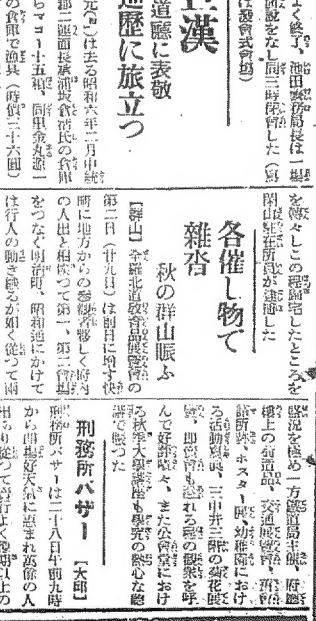 よく終了、池田警務局長は一場
をなし同三時閉會した（寫
は發會式會場）
漢
道廳に表敬
遍歴に旅立つ
は去る昭和六年二月中統
郡二運面長承浦坂倉浩氏の倉庫
らマコー十五箱、同里金丸源一
の倉庫で漁具（時價三十六圓）
を轉々しこの程歸宅したところを
開山駐在所員が逮捕した
各催し物で
雜沓
秋の群山賑ふ
【群山】全羅北道展覽會の
第二日（廿九日）は前日に増す快
晴に地方からの參觀者夥しく府内
の人出と相俟つて第一、第二會場
をつなぐ明治町、昭和通にかけて
は行人の動き織るが如く從つて兩
盛況を極め一方鐵道局主催、府廳
樓上の品、交通展覽會、商會
議所跡のポスター展、幼稚園におけ
る活動寫眞、三中井三階の菊花展
覽、即賣會も溢れる程の觀衆を呼
んで好評嘖々、また公會堂におけ
る秋季大學講座も學究の熱心な聽
講で賑つた
刑務所バザー 【大邱】
刑務所バザーは二十八日午前九時
から開場好天氣に惠まれ萬餘の人
出あり從つて賣行よく豫期以上の